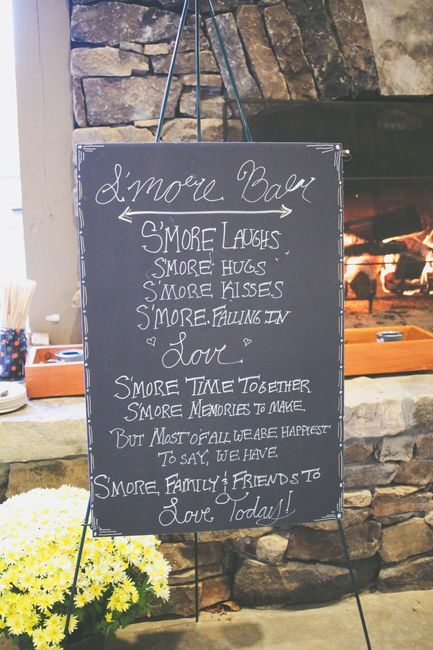 S'more Bar
S'MORE LAUGHS
S'MORE HUGS
S'MORE KISSES
S'MORE FALLING IN
Love
S'MORE TIME TOGETHER
S'MORE MEMORIES TO MAKE
BUT MOST OF ALL WE ARE HAPPIEST
TO SAY, WE HAVE
S'MORE, FAMILY & FRIENDS TO
Love Today!